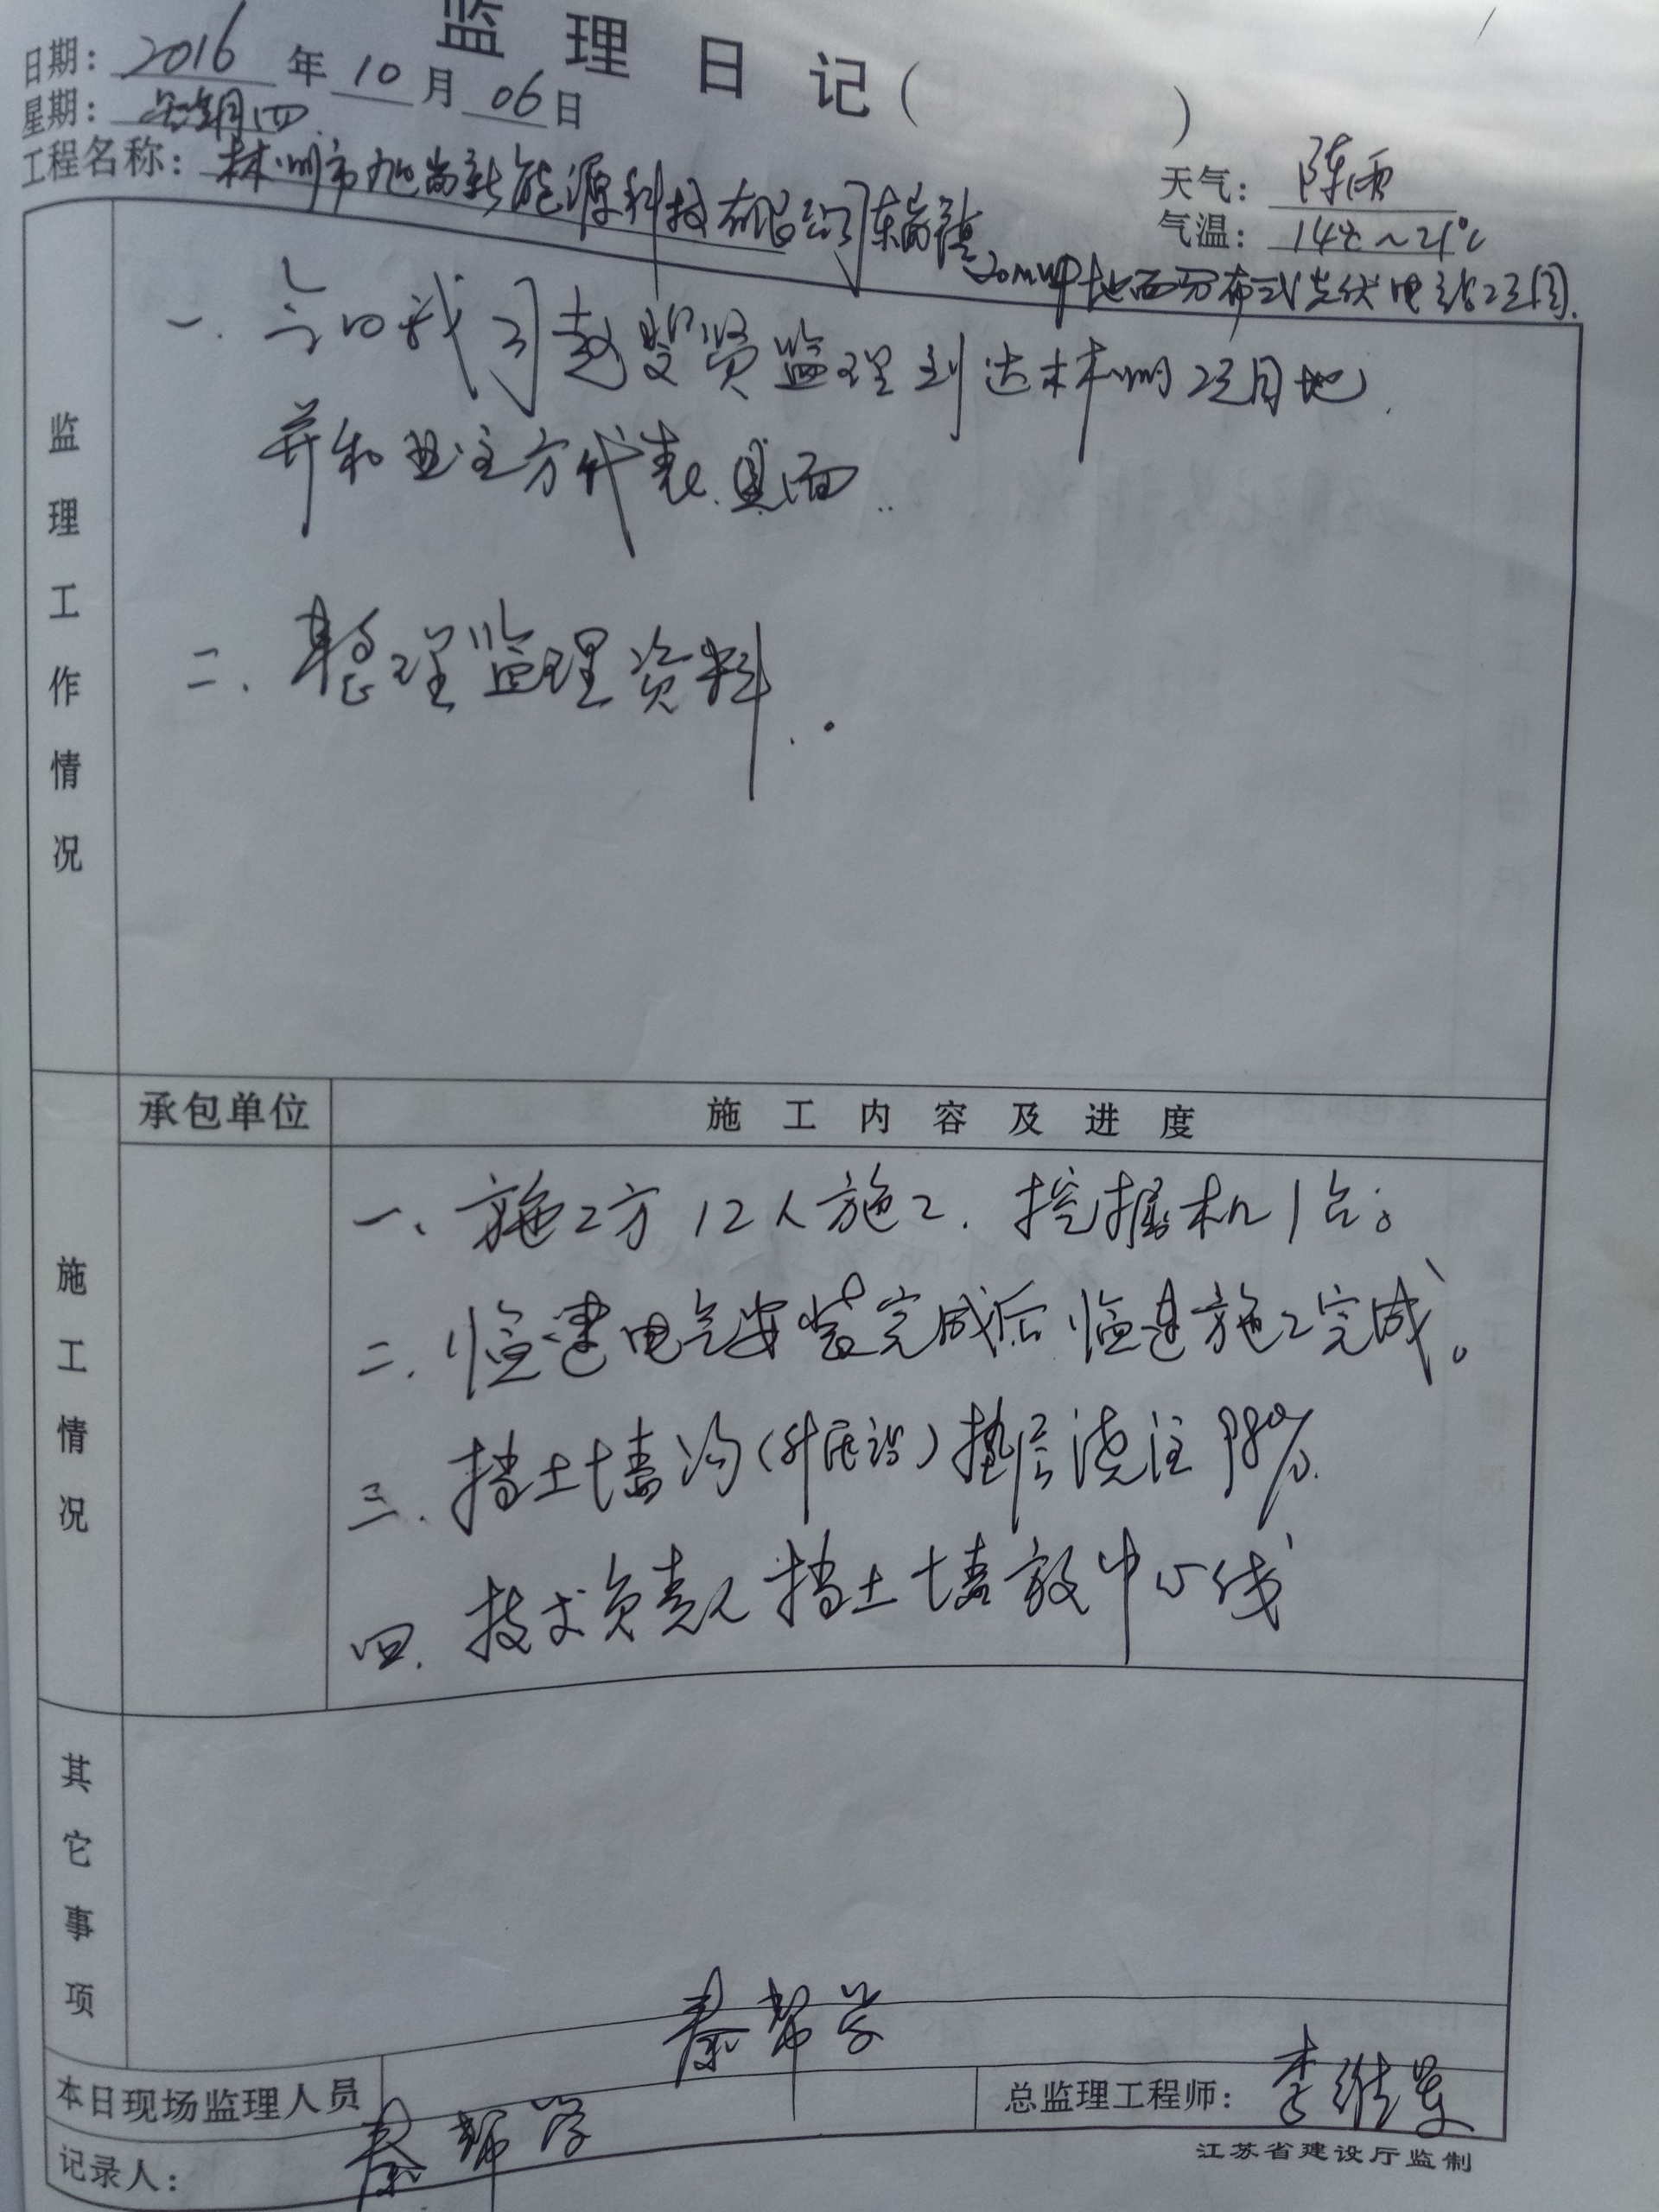 监理日记（ ）
日期：2016年10月06日
星期：星期四
天气：阵雨
气温：14℃～21℃
工程名称：林州市旭尚新能源科技有限公司东岗镇20MWP地面分布式光伏电站工程.
监理工作情况
一.今日我司赵 贤监理到达林州 目地.
并和业主方代表.见面..
二.整理监理资料..
承包单位 施工内容及进度
施工情况
一、施工方12人施工.挖掘机1台;
二.临建电气安装完成后临建施工完成。
三.挡土墙沟( )垫层浇注98%.
四.技术负责人挡土墙放中心线
其它事项
秦帮学
本日现场监理人员
总监理工程师：李维
记录人：秦帮学
江苏省建设厅监制